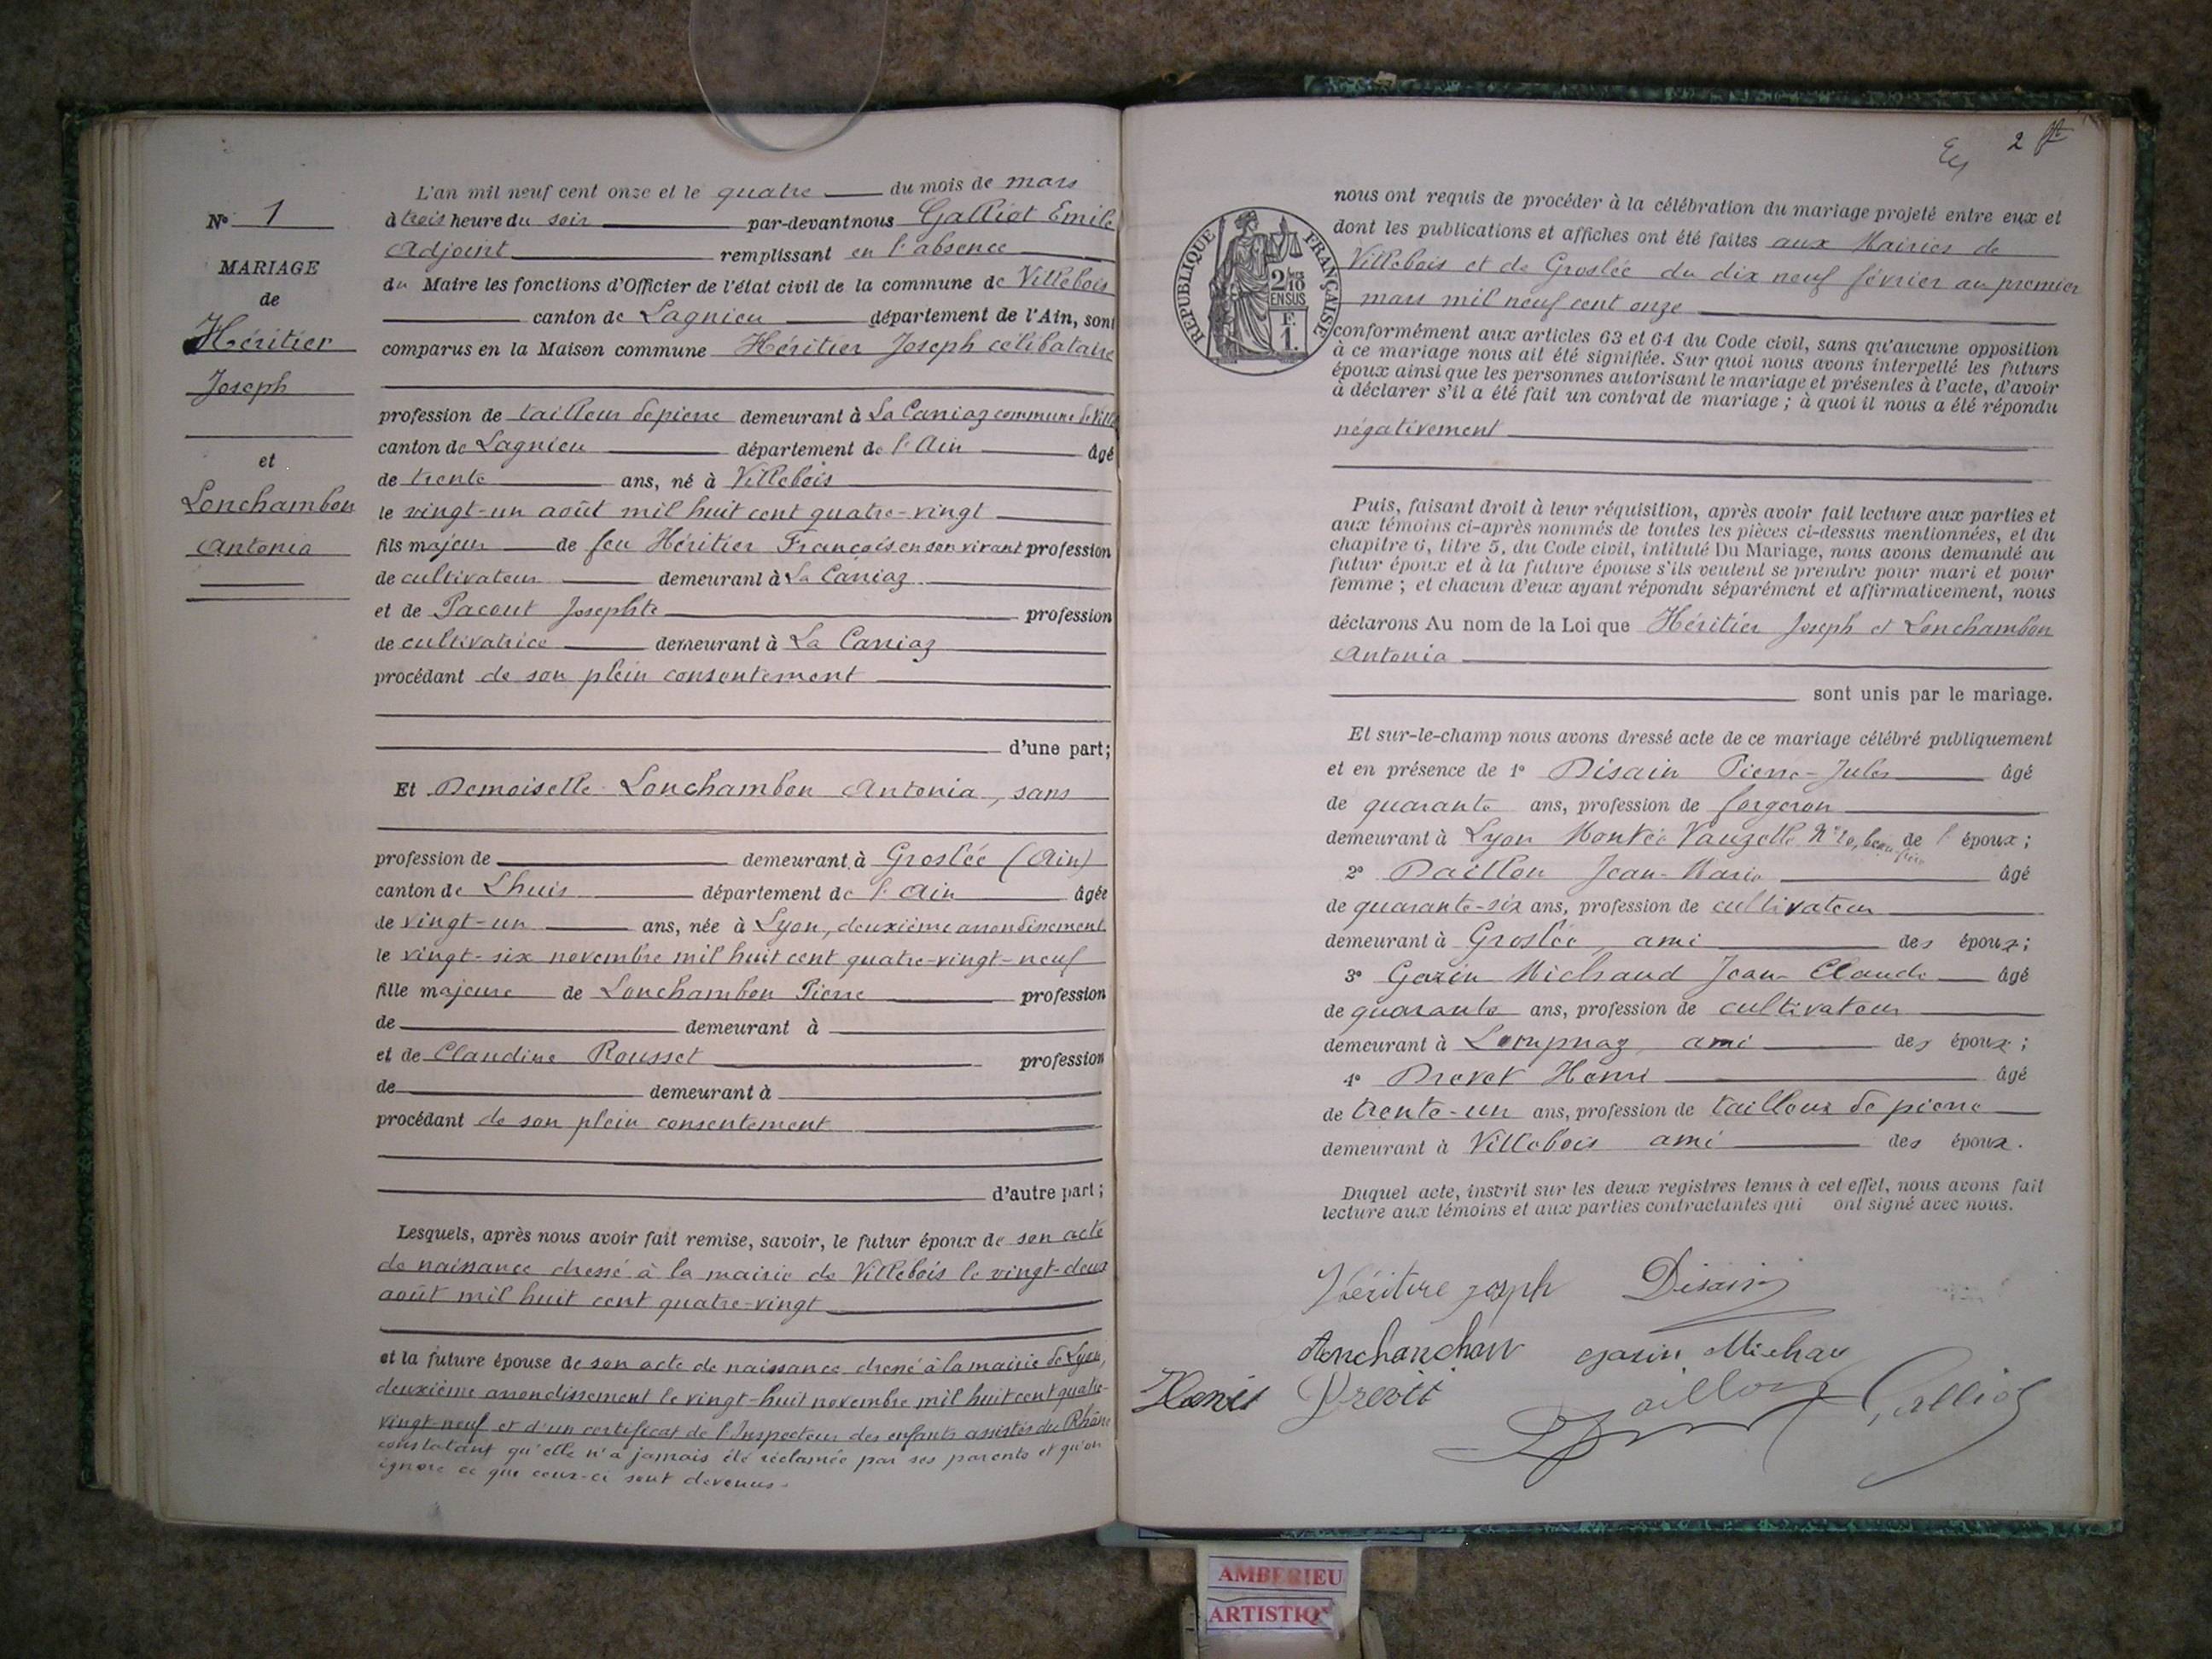 N° 1
MARIAGE
de
Héritier
Joseph
et
Lonchambon
Antonia
L'an mil neuf cent onze et le quatre du mois de mars
à trois heure du soir par-devant nous Galliot Emile
Adjoint remplissant en l'absence
du Maire les fonctions d'Officier de l'état civil de la commune de Villebois
canton de Lagnieu département de l'Ain, sont
comparus en la Maison commune Héritier Joseph célibataire
profession de tailleur de pierre demeurant à La Carriaz commune de Ville
canton de Lagnieu département de l'Ain âgé
de trente ans, né à Villebois
le vingt-un août mil huit cent quatre-vingt
fils majeur de feu Héritier François en son vivant profession
de cultivateur demeurant à La Carriaz
et de Pacout Josephte profession
de cultivatrice demeurant à La Carriaz
procédant de son plein consentement
d'une part;
Et Demoiselle Lonchambon Antonia, sans
profession de demeurant à Groslée (Ain)
canton de Lhuis département de l'Ain âgée
de vingt-un ans, née à Lyon, deuxième arrondissement
le vingt-six novembre mil huit cent quatre-vingt-neuf
fille majeure de Lonchambon Pierre profession
de demeurant à
et de Claudine Rousset profession
de demeurant à
procédant de son plein consentement
d'autre part;
Lesquels, après nous avoir fait remise, savoir, le futur époux de son acte
de naissance dressé à la mairie de Villebois le vingt-deux
août mil huit cent quatre-vingt
et la future épouse de son acte de naissance dressé à la mairie de Lyon,
deuxième arrondissement le vingt-huit novembre mil huit cent quatre-
vingt-neuf et d'un certificat de l'Inspecteur des enfants assistés du Rhône
constatant qu'elle n'a jamais été réclamée par ses parents et qu'on
ignore ce que ceux-ci sont devenus.
2
REPUBLIQUE FRANÇAISE
2/10
EN SUS
F.
1.
nous ont requis de procéder à la célébration du mariage projeté entre eux et
dont les publications et affiches ont été faites aux Mairies de
Villebois et de Groslée du dix neuf février au premier
mars mil neuf cent onze
conformément aux articles 63 et 64 du Code civil, sans qu'aucune opposition
à ce mariage nous ait été signifiée. Sur quoi nous avons interpellé les futurs
époux ainsi que les personnes autorisant le mariage et présentes à l'acte, d'avoir
à déclarer s'il a été fait un contrat de mariage; à quoi il nous a été répondu
négativement
Puis, faisant droit à leur réquisition, après avoir fait lecture aux parties et
aux témoins ci-après nommés de toutes les pièces ci-dessus mentionnées, et du
chapitre 6, titre 5, du Code civil, intitulé Du Mariage, nous avons demandé au
futur époux et à la future épouse s'ils veulent se prendre pour mari et pour
femme; et chacun d'eux ayant répondu séparément et affirmativement, nous
déclarons Au nom de la Loi que Héritier Joseph et Lonchambon
Antonia
sont unis par le mariage.
Et sur-le-champ nous avons dressé acte de ce mariage célébré publiquement
et en présence de 1° Disain Pierre-Jules âgé
de quarante ans, profession de forgeron
demeurant à Lyon Montée Vauzelle N° 20, beau-frère de l'époux;
2° Daillon Jean-Marie âgé
de quarante-six ans, profession de cultivateur
demeurant à Groslée, ami des époux;
3° Gazin Michaud Jean-Claude âgé
de quarante ans, profession de cultivateur
demeurant à ami des époux;
4° Drevet Henri âgé
de trente-un ans, profession de tailleur de pierre
demeurant à Villebois ami des époux.
Duquel acte, inscrit sur les deux registres tenus à cet effet, nous avons fait
lecture aux témoins et aux parties contractantes qui ont signé avec nous.
Héritier joseph Disain
gasin Michau
Drevet Daillon Galliot
AMBERIEU
ARTISTIQ